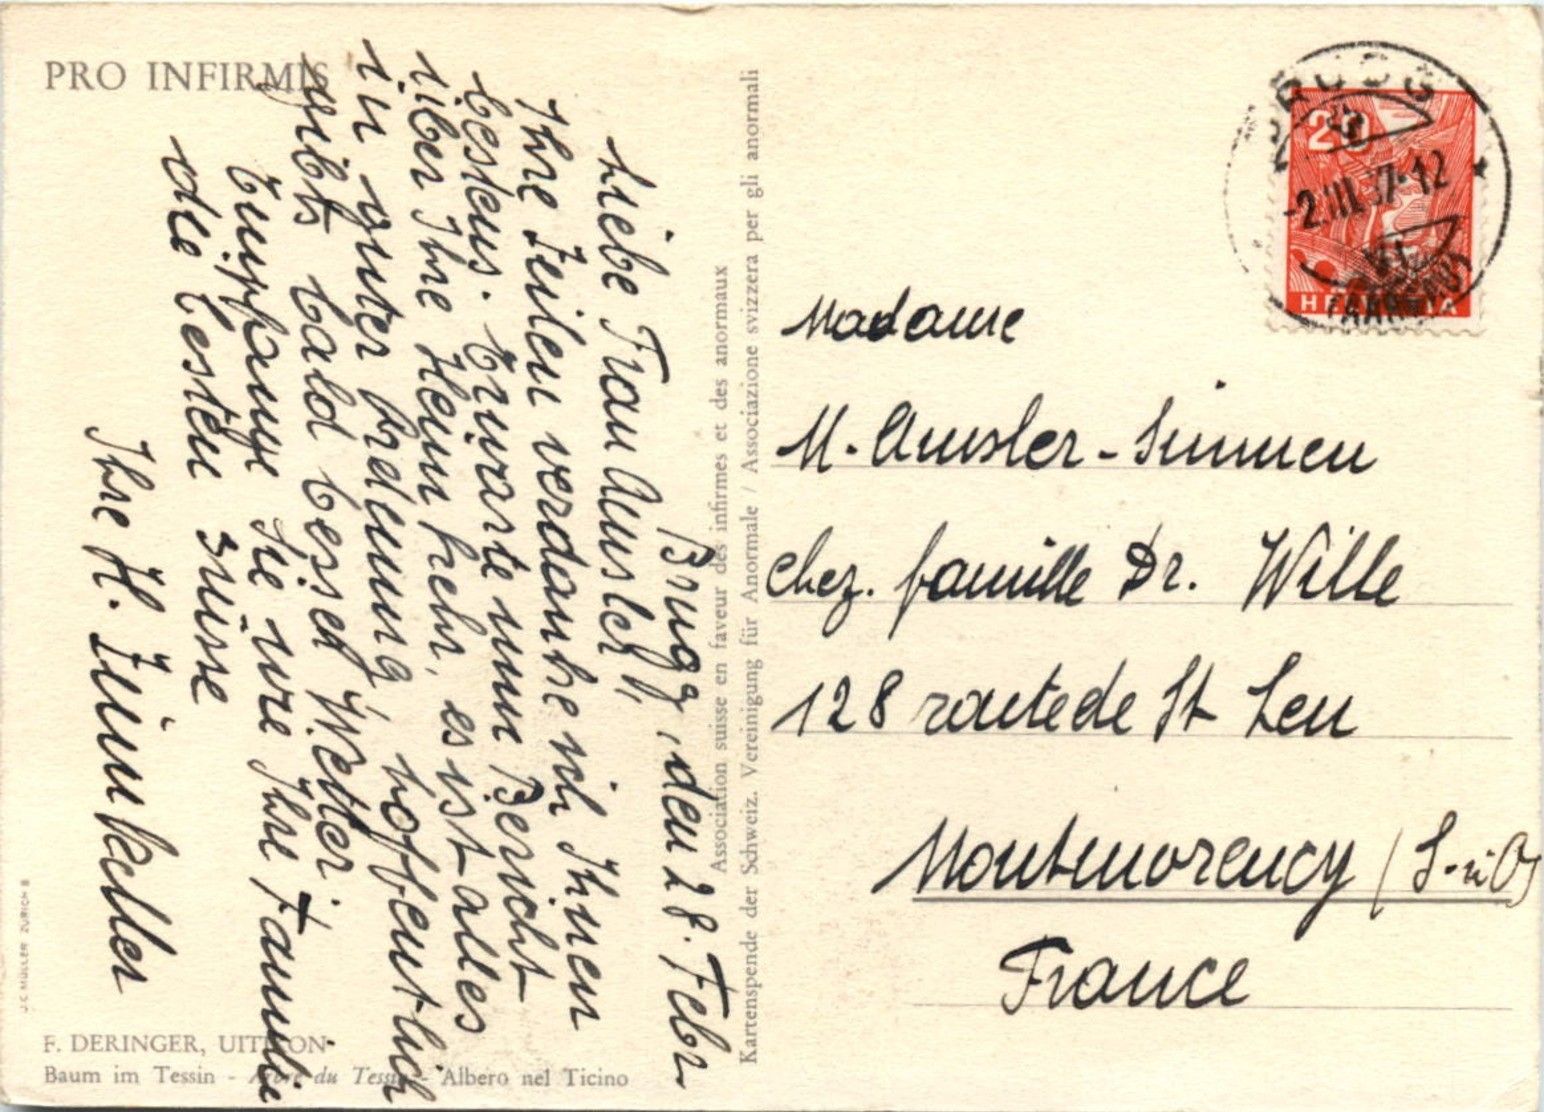 PRO INFIRMIS
Brugg, den 28. Febr.
Liebe Frau Amsler,
Ihre Zeilen verdanke ich Ihnen
bestens. Erwarte nun Bericht
über Ihre Heimkehr, es ist alles
in guter Ordnung, hoffentlich
gibts bald besser Wetter.
Empfangen Sie wie Ihre Familie
die besten Grüsse
Ihre H. Zimmkeller
J.C. MÜLLER ZÜRICH 8
F. DERINGER, UITIKON
Baum im Tessin - Arbre du Tessin - Albero nel Ticino
Association suisse en faveur des infirmes et des anormaux
Kartenspende der Schweiz. Vereinigung für Anormale / Associazione svizzera per gli anormali
BRUGG
-2.III.37-12
20
HELVETIA
Madame
M. Amsler-Simmen
chez. famille Dr. Wille
128 route de St Leu
Montmorency (S. u O)
France